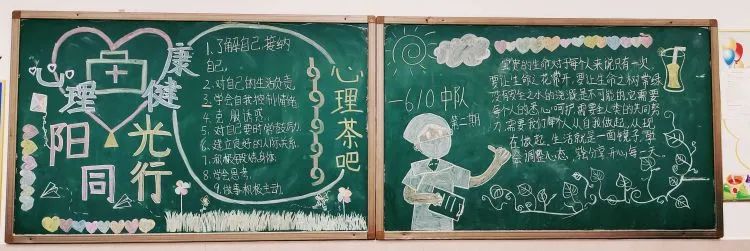 心理健康
阳光同行
1.了解自己,接纳
自己。
2.对自己的生活负责。
3.学会自我控制情绪
4.克服诱惑
5.对自己要时常鼓励。
6.建立良好的人际关系。
7.积极锻炼身体。
8.学会思考。
9.做事积极主动。
心理茶吧
一610中队
第二期
宝贵的生命对于每个人来说只有一次。
要让生命之花常开,要让生命之树常绿
没有
生之水的浇灌是不可能的,它需要
每个人的悉心呵护,需要全人类的共同努
力,需要我们每个人从自我做起,从现
在做起。生活就是一面镜子,
调整心态,
开心每一天。